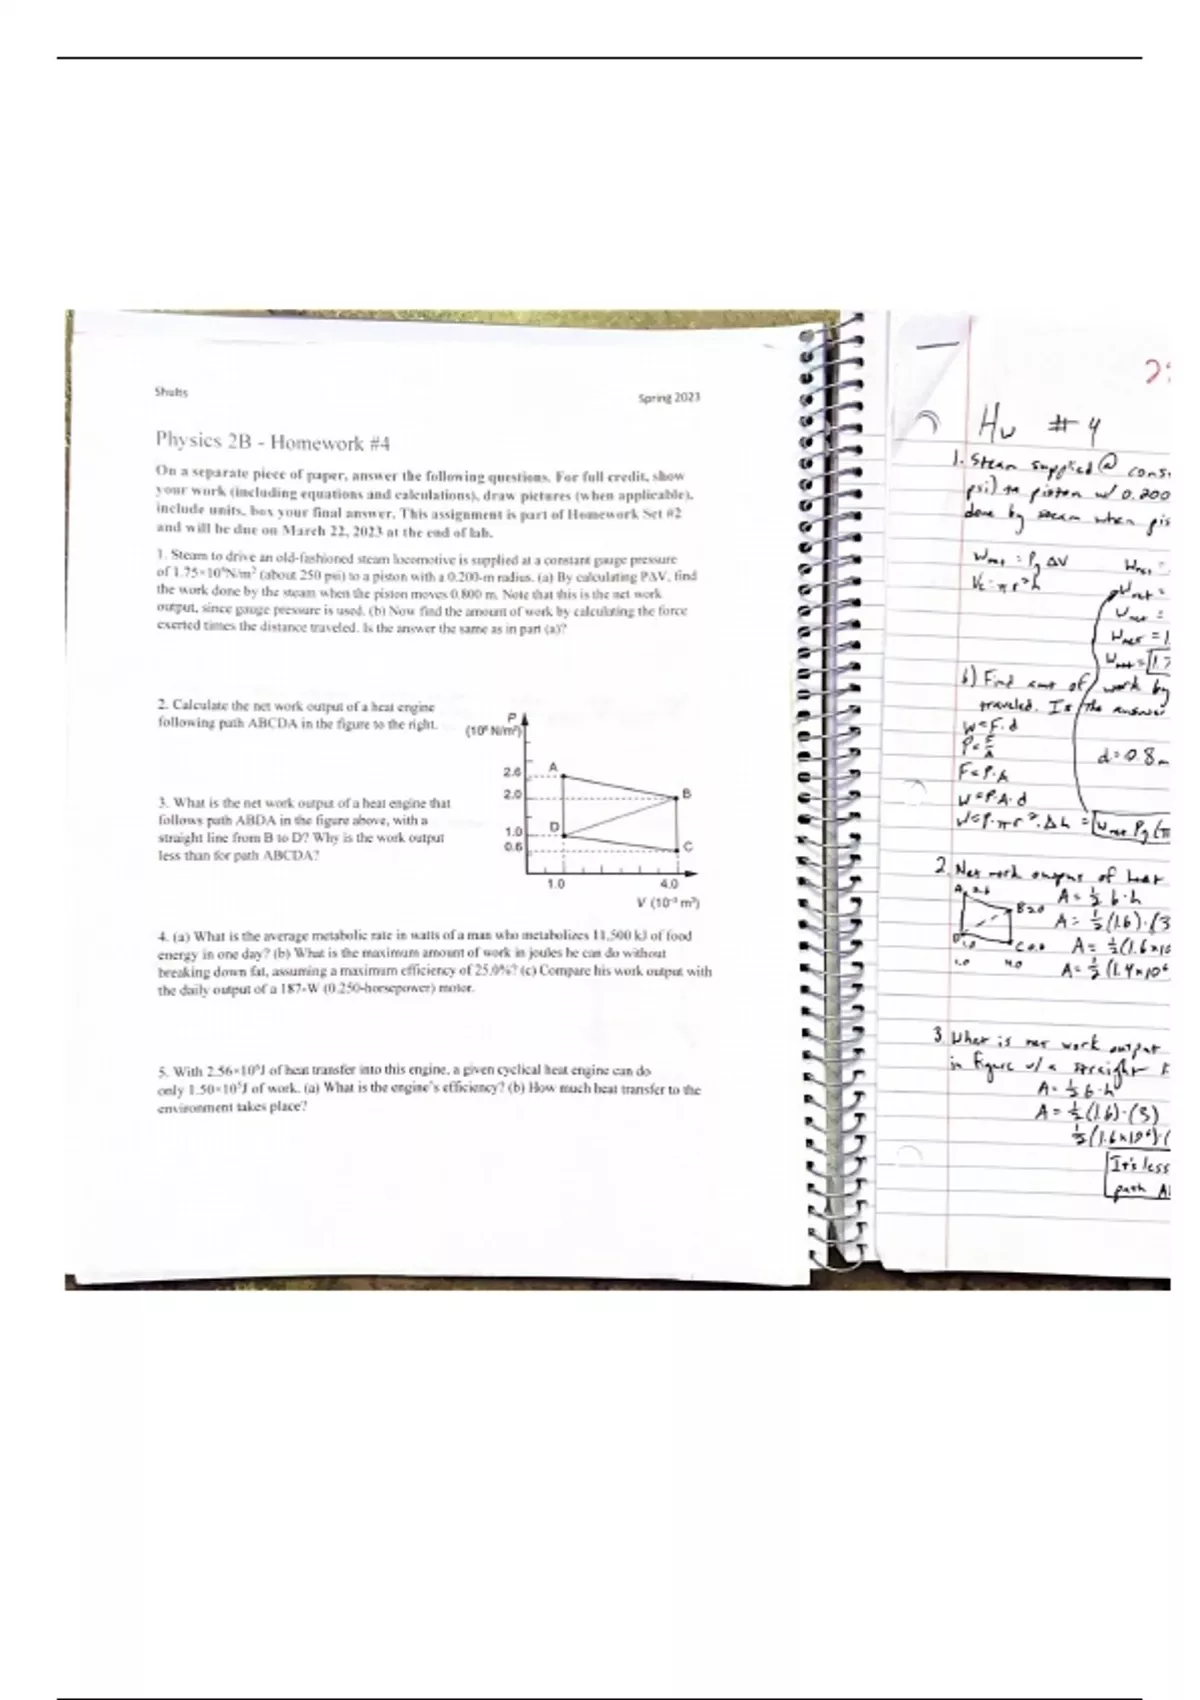 Shults
Spring 2023
Physics 2B - Homework #4
On a separate piece of paper, answer the following questions. For full credit, show
your work (including equations and calculations), draw pictures (when applicable),
include units, box your final answer. This assignment is part of Homework Set #2
and will be due on March 22, 2023 at the end of lab.
1. Steam to drive an old-fashioned steam locomotive is supplied at a constant gauge pressure
of 1.75×10⁶N/m² (about 250 psi) to a piston with a 0.200-m radius. (a) By calculating PΔV, find
the work done by the steam when the piston moves 0.800 m. Note that this is the net work
output, since gauge pressure is used. (b) Now find the amount of work by calculating the force
exerted times the distance traveled. Is the answer the same as in part (a)?
2. Calculate the net work output of a heat engine
following path ABCDA in the figure to the right.
P
(10⁶ N/m²)
2.6
A
2.0
B
1.0
D
0.6
C
1.0
4.0
V (10⁻³ m³)
3. What is the net work output of a heat engine that
follows path ABDA in the figure above, with a
straight line from B to D? Why is the work output
less than for path ABCDA?
4. (a) What is the average metabolic rate in watts of a man who metabolizes 11,500 kJ of food
energy in one day? (b) What is the maximum amount of work in joules he can do without
breaking down fat, assuming a maximum efficiency of 25.0%? (c) Compare his work output with
the daily output of a 187-W (0.250-horsepower) motor.
5. With 2.56×10⁶J of heat transfer into this engine, a given cyclical heat engine can do
only 1.50×10⁵J of work. (a) What is the engine's efficiency? (b) How much heat transfer to the
environment takes place?
Hw #4
1. Steam supplied @ cons
psi) to piston w/ 0.200
done by steam when pis
Wnet = Pg ΔV
Wnet =
V = πr²h
Wnet =
Wnet =
Wnet = 1.
Wnet = 1.7
b) Find amt of work by
traveled. Is the answer
W = F·d
P = F/A
d = 0.8m
F = P·A
W = P·A·d
W = P·πr²·Δh = Wnet Pg (π
2. Net work output of heat
A 2.6
A = ½ b·h
B 2.0
A = ½(1.6)·(3
D 1.0
A = ½(1.6×10
1.0
4.0
A = ½(1.4×10⁶
3. What is net work output
in figure w/ a straight
A = ½ b·h
A = ½(1.6)·(3)
½(1.6×10⁶)·(
It's less
path A